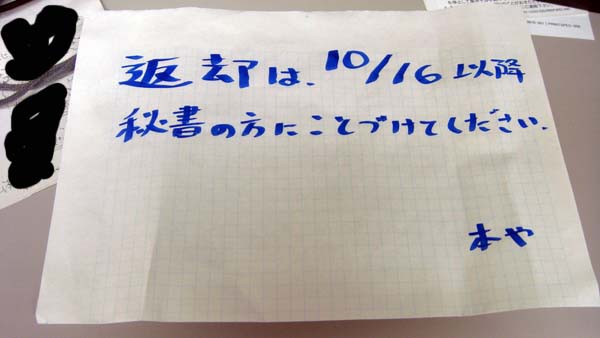 返却は、10/16以降
秘書の方にことづけてください.
本や